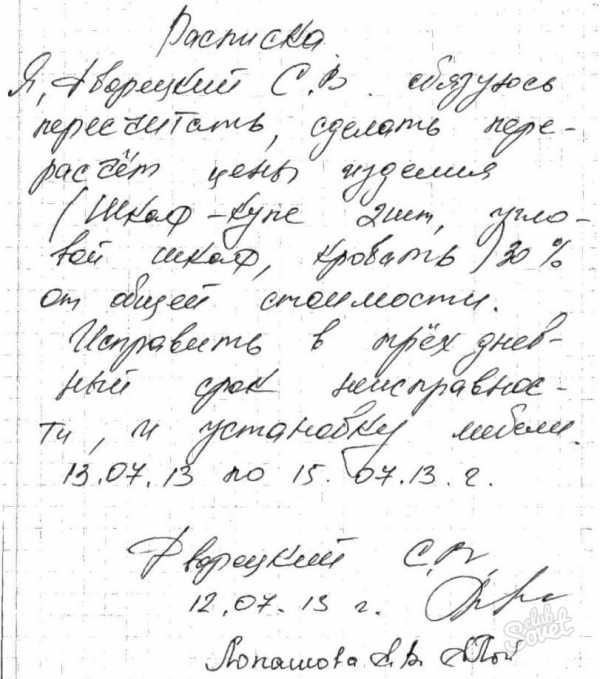 Расписка.
Я, Дворецкий С.В. обязуюсь
пересчитать, сделать пере-
расчёт цены изделия
(Шкаф-купе 2шт, угло-
вой шкаф, кровать) 30%
от общей стоимости.
Исправить в трёх днев-
ный срок неисправнос-
ти, и установку мебели.
13.07.13 по 15.07.13.г.
Дворецкий С.В.
12.07.13 г.
Лопашова А.В.
club
Sovet